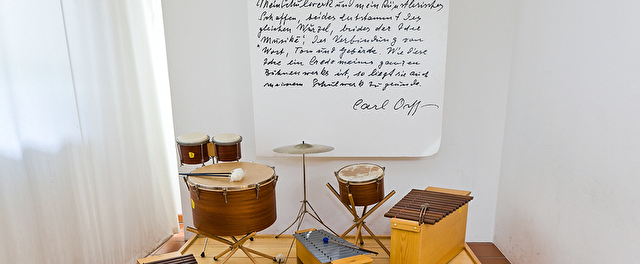 Mein Schulwerk und mein künstlerisches
Schaffen, beides entstammt der
gleichen Wurzel, beides der Idee
"Musiké", der Verbindung von
Wort, Ton und Gebärde. Wie diese
Idee ein Credo meines ganzen
Bühnenwerks ist, so liegt sie auch
meinem Schulwerk zu grunde.
Carl Orff